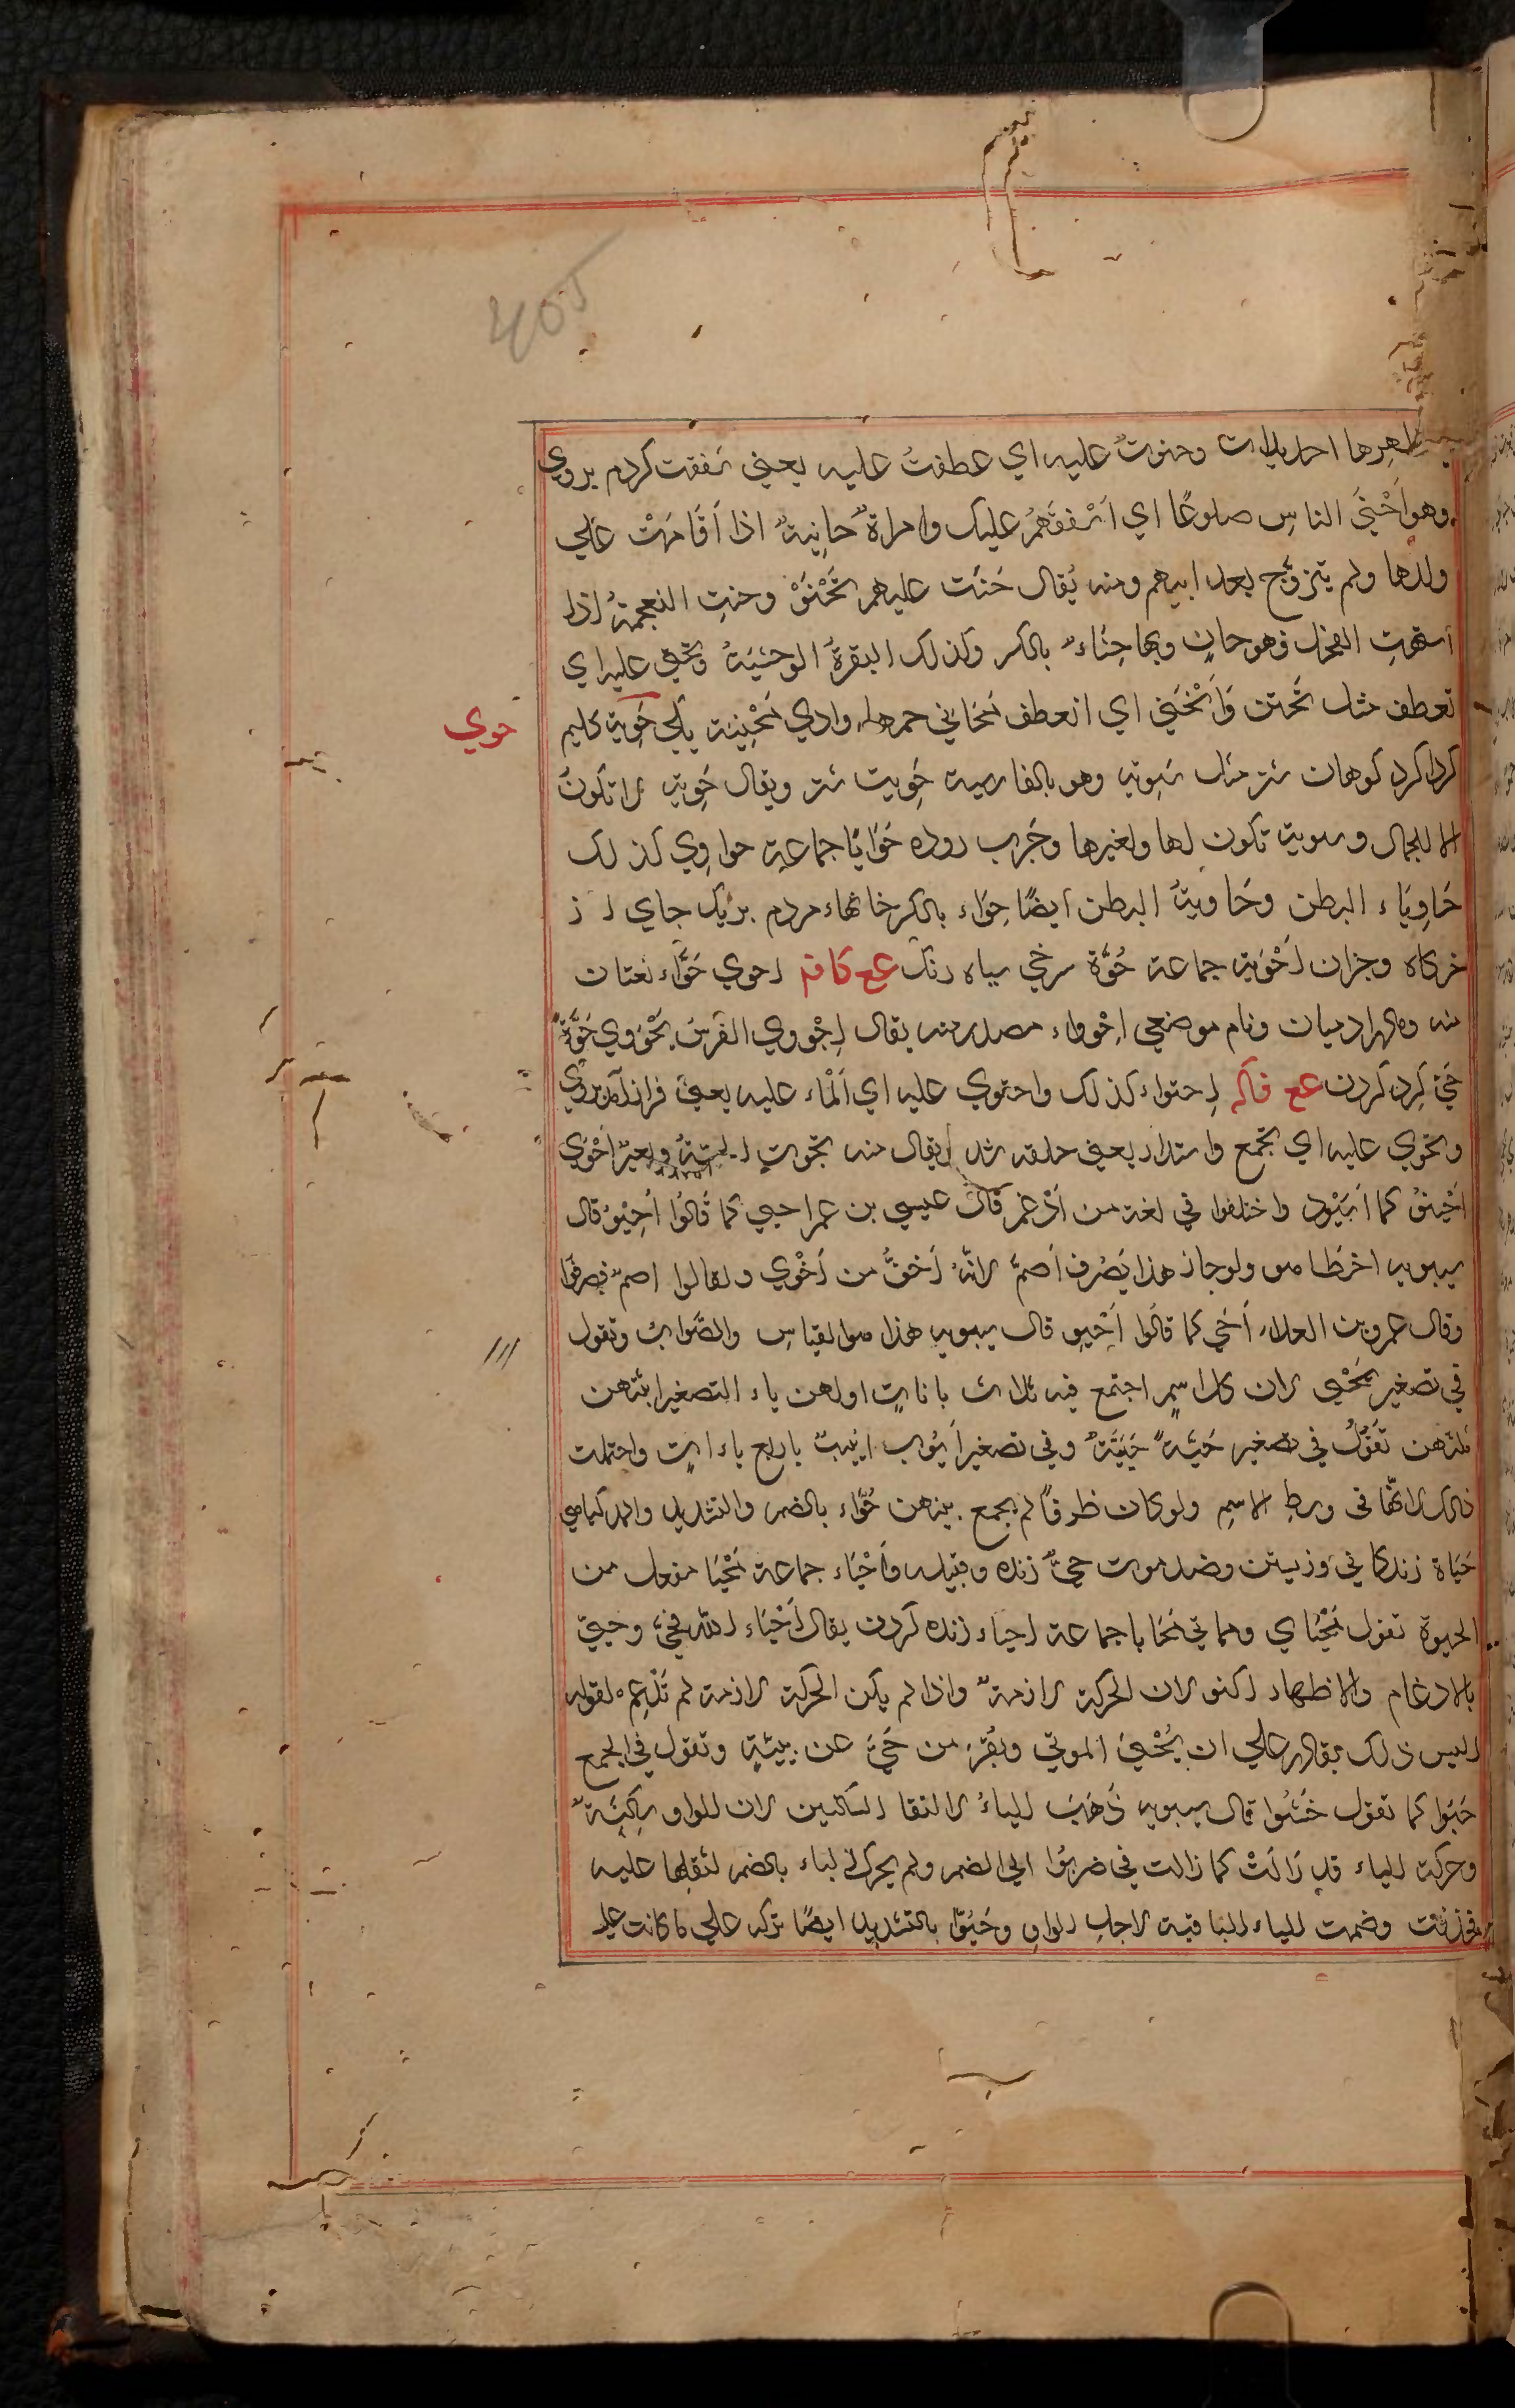 405
ظهرها احديداب وحنوتُ عليه اي عطفتُ عليه يعني شفقت كردم بروي
وهو اَحْنَي الناسِ ضلوعًا اي اَشْفقَهُمْ عليك وامراةٌ حانِيةٌ اذا اَقَامَتْ عَلي
ولدها ولم يتزوَّج بعد ابيهم ومنه يُقال حَنَت عليهم تَحْنَوْ وحنتِ النعجةُ اذا
اشتهتِ الفحل فهو حانٍ وبها حِنَاءٌ بالكسر وكذلك البقرةُ الوحشيَّةُ وتحني عليه اي
تعطف مثل تحنن وَاَنْحَنَي اي انعطف مَحَاني جمعها وادي مَحْنِيَة يكي حَوِية كليم
حوي
كردا كرد كوهان شتر مثل سَوِيه وهو بالفارسية حَوِيت شتر ويقال حَوِيه لا تكونُ
الا للجمال وسوية تكون لها ولغيرها وچرب روده حَوَايَا جماعة حواوِي كذلك
حَاوِيَاء البطن وحَاوِيَةُ البطن ايضًا حِوَاء بالكسر خانهاء مردم بريك جاي از
خركاه وجزان اَحْوِية جماعة حُوَّة سرخي سياه رنك عع كافه احوي حَوَّاء نعتان
منه وما در ادميان ونام موضعي اِحْوِوَاء مصدر منه يقال اِحْووي الفَرَسُ يَحْوَوِي حُوَّةً
حَيّ كِرد كردن عع فاكه اِحتواء كذلك واحتوي عليه اي اَلْمَاء عليه يعني فراز آمد بروي
وتحوي عليه اي تجمع واستدار يعني حلقه شد يقال منه تحوت الحيَّةُ وبعيرٌ اَحْوَي
سيبويه اخطا هو ولو جاز هذا يَصْرف اَصَمَّ لانَّهُ اَخفُّ من اَحْوي ولقالوا اصمٌ فصرفوا
وقال عمرو بن العلاء اُحَي كما قالُوا اُحَيْوٍ قال سيبويه هذا هو القياس والصَّواب وتقول
في تصغير يَحْيي لان كل اسمٍ اجتمع فيه ثلاث ياءاتٍ اولهن ياء التصغير اثبتهن
ثلثهن تَقُولُ في تصغير حَيَّةً حُيَيَّةٌ وفي تصغير اَيُّوب اييبٌ باربع ياءاتٍ واحتملت
ذلك لانها في وسطِ الاسمِ ولو كان طرفًا لم يجمع بينهن حُوَّاء بالضم والتشديد والمد كياهي
حَيَاة زندكاني وزيستن وضد موت حيٌّ زنده وقبيله واَحْيَاء جماعة مَحْيَا مفعل من
الحيوة تقول مَحْيَاي ومماتي مَحَايا جماعة احياء زنده كردن يقال اَحْيَاء الله فَحَيَّ وحيي
بالادغام والاظهار اكثر لان الحركة لازمةٌ واذا لم يكن الحركة لازمة لم تُدغم لقوله
اليس ذلك بقادر علي ان يُحْيِيَ الموتي ويُقْرَ من حَيَّ عن بيّنةٍ وتقول في الجمع
حَيُوا كما تقول خَشُوا قال سيبويه ذَهَبَ الياءُ لالتقا الساكنين لان الواو ساكنَةٌ
وحركة الياء قد زَالَتْ كما زالت في ضربُوا الي الضم ولم يحرك الياء بالضم لثقلها عليه
فحذفت وضمت الياء الباقية لاجل الواو وحَيُّوا بالتشديد ايضًا تركه علي ما كانت عليه